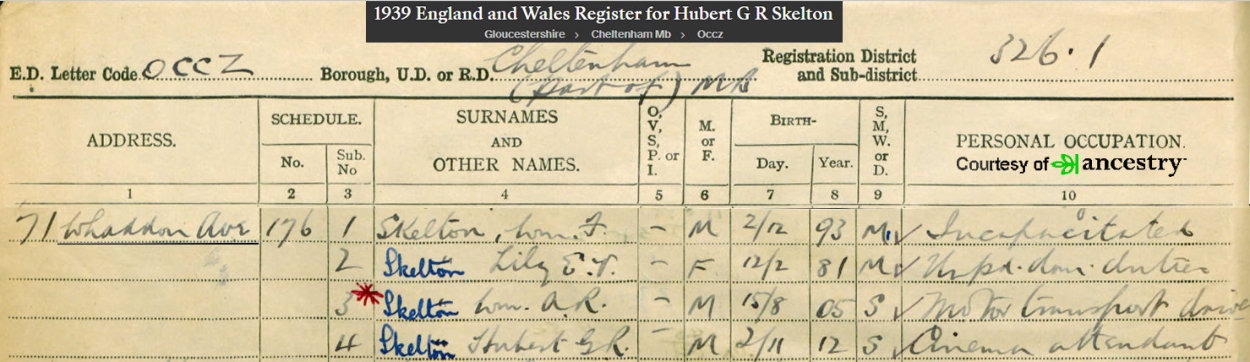 1939 England and Wales Register for Hubert G R Skelton
Gloucestershire > Cheltenham Mb > Occz
E.D. Letter Code OCCZ Borough, U.D. or R.D. Cheltenham (part of) MB Registration District and Sub-district 326.1
ADDRESS. SCHEDULE. No. Sub. No SURNAMES AND OTHER NAMES. O, V, S, P. or I. M. or F. BIRTH- Day. Year. S, M, W. or D. PERSONAL OCCUPATION.
Courtesy of ancestry
1 2 3 4 5 6 7 8 9 10
71 Whaddon Ave 176 1 Skelton, Wm. F. – M 2/12 93 M. ✓ Incapacitated
2 Skelton Lily E. – F 12/2 81 M ✓ Unpd. dom. duties
3 * Skelton Wm. A. R. – M 15/8 05 S ✓ Motor transport driver
4 Skelton Hubert G R. – M 2/11 12 S ✓ Cinema attendant